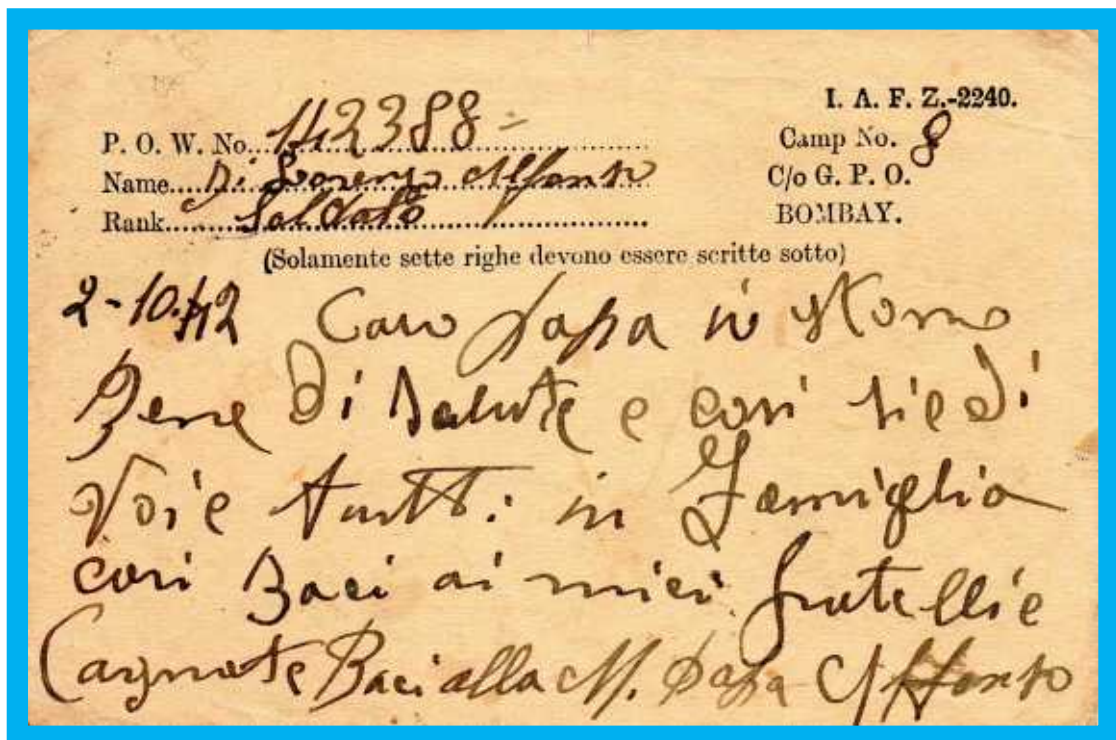 I. A. F. Z.-2240.
P. O. W. No. 142388-
Camp No. 8
Name Di Lorenzo Alfonso
C/o G. P. O.
Rank Soldato
BOMBAY.
(Solamente sette righe devono essere scritte sotto)
2-10-42 Caro Papa io sto
Bene Di Salute e cosi sie di
Voi e tutti in Famiglia
cosi Baci ai miei fratelli e
Cagnate Baci alla M. Papa Alfonso